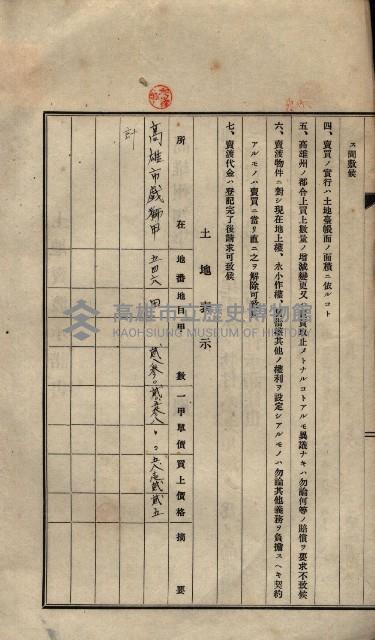 ス間敷候
四、賣買ノ實行ハ土地臺帳面ノ面積ニ依ルコト
五、高雄州ノ都合上買上數量ノ增減變更又ハ賣買取止メトナルコトアルモ異議ナキハ勿論何等ノ賠償ヲ要求不致候
六、賣渡物件ニ對シ現在地上權、永小作權、其他ノ權利ヲ設定シアルモノハ勿論其他義務ヲ負擔スヘキ契約
アルモノハ賣買ニ當リ直ニ之ヲ解除可致
七、賣渡代金ハ登記完了後請求可致候
土地表示
所在 地番 地目 甲數 一甲單價 買上價格 摘要
高雄市戲獅甲 五四六 田
計
高雄市立歷史博物館
KAOHSIUNG MUSEUM OF HISTORY